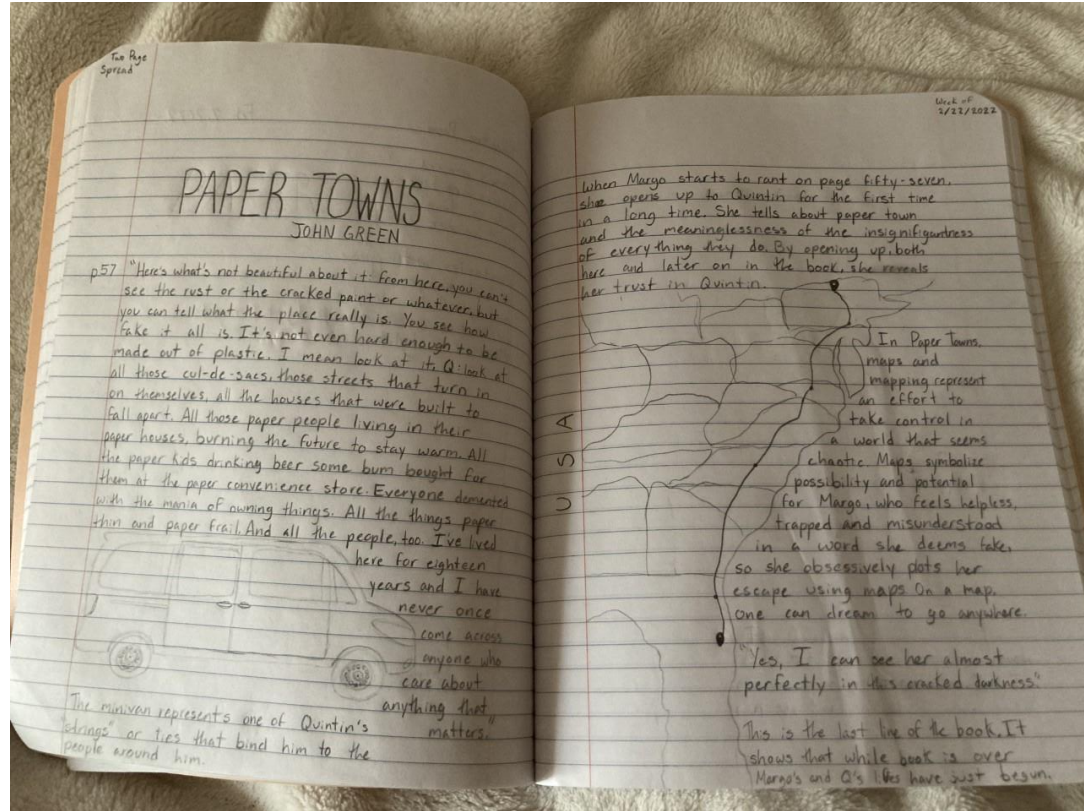 Two Page
Spread
PAPER TOWNS
JOHN GREEN
p57 "Here's what's not beautiful about it: from here, you can't
see the rust or the cracked paint or whatever, but
you can tell what the place really is. You see how
fake it all is. It's not even hard enough to be
made out of plastic. I mean look at it, Q: look at
all those cul-de-sacs, those streets that turn in
on themselves, all the houses that were built to
fall apart. All those paper people living in their
paper houses, burning the future to stay warm. All
the paper kids drinking beer some bum bought for
them at the paper convenience store. Everyone demented
with the mania of owning things. All the things paper
thin and paper frail. And all the people, too. I've lived
here for eighteen
years and I have
never once
come across
anyone who
care about
anything that
matters."
The minivan represents one of Quintin's
"strings" or ties that bind him to the
people around him.
Week of
2/22/2022
When Margo starts to rant on page fifty-seven,
she opens up to Quintin for the first time
in a long time. She tells about paper town
and the meaninglessness of the insignifigantness
of everything they do. By opening up, both
here and later on in the book, she reveals
her trust in Quintin.
USA
In Paper Towns,
maps and
mapping represent
an effort to
take control in
a world that seems
chaotic. Maps symbolize
possibility and potential
for Margo, who feels helpless,
trapped and misunderstood
in a word she deems fake,
so she obsessively plots her
escape using maps. On a map,
one can dream to go anywhere.
"Yes, I can see her almost
perfectly in this cracked darkness."
This is the last line of the book. It
shows that while book is over
Margo's and Q's lives have just begun.